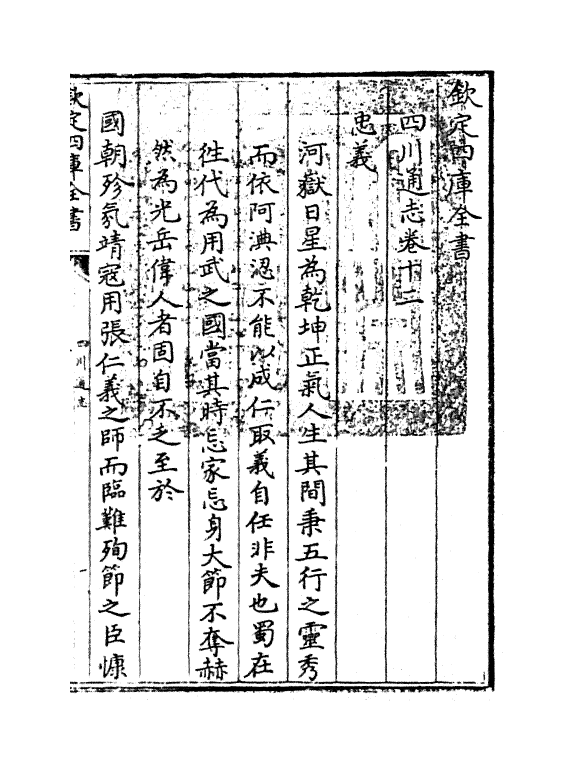 欽定四庫全書
四川通志卷十二
忠義
河嶽日星為乾坤正氣人生其間秉五行之靈秀
而依阿淟涊不能以成仁取義自任非夫也蜀在
徃代為用武之國當其時忘家忘身大節不奪赫
然為光岳偉人者固自不乏至於
國朝殄氛靖寇用張仁義之師而臨難殉節之臣慷
欽定四庫全書
四川通志